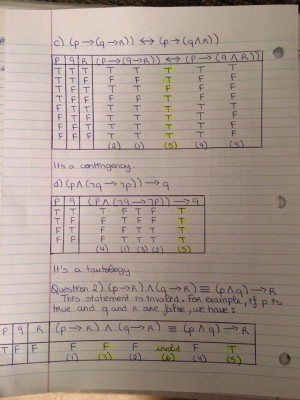 c) (P → (q → R)) ↔ (p → (q ∧ R))
P q R (P → (q → R)) ↔ (P → (q ∧ R))
T T T T T T T T
T T F F F T F F
(2) (1) (5) (4) (3)
Its a contingency.
d) (P ∧ (¬q → ¬p)) → q
P q (P ∧ (¬q → ¬p)) → q
T T T F T F T
T F F T F F T
F T F F T T T
F F F T T T T
(4) (1) (3) (2) (5)
It's a tautology
Question 2) (p → R) ∧ (q → R) ≡ (p ∧ q) → R
This statement is invalid. For example, if p is
true and q and R are false, we have:
P q R (p → R) ∧ (q → R) ≡ (p ∧ q) → R
T F F F F F invalid F T
(1) (3) (2) (6) (4) (5)